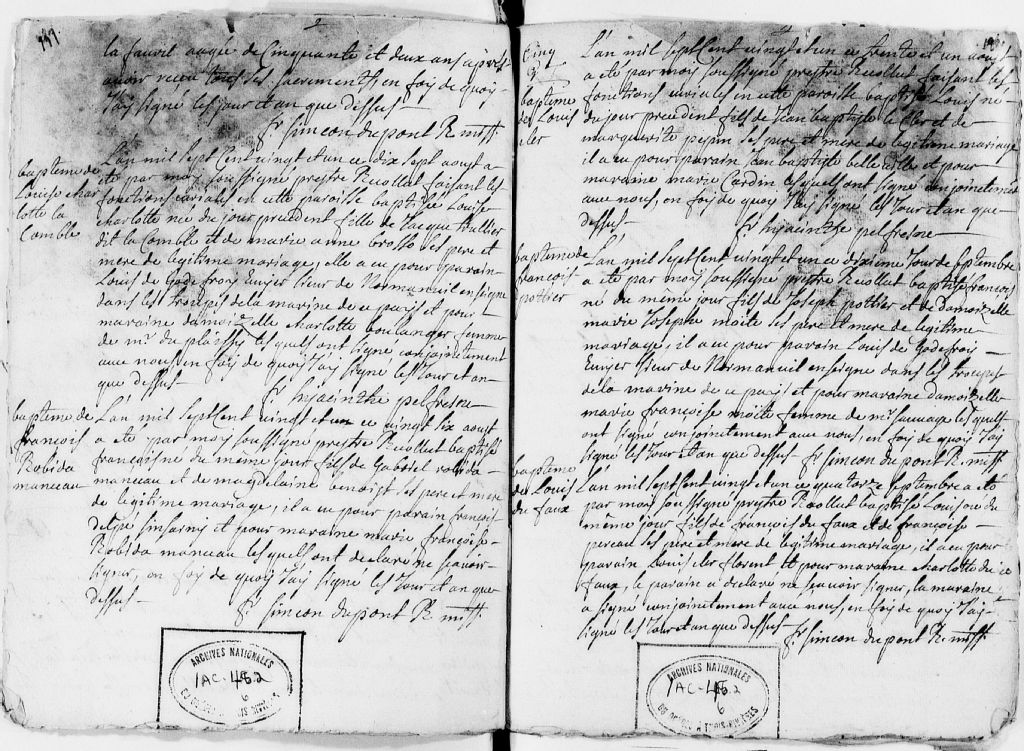 197.
2
la fauvil aagée de Cinquante et deux ans après
avoir reçeu tous ses sacrements, en foy de quoy
J'ay signé les jour et an que dessus
fr simeon dupont R. miss.
bapteme de
Louise char
lotte la
Comble
L'an mil sept Cent vingt et un ce dix sept aoust a
eté par moy soussigné prestre Recollet faisant les
fonctions curiales en cette paroisse baptisé Louise
charlotte née du jour precedent fille de Jacque
dit la Comble et de marie anne brosso ses pere et
mere de legitime mariage, elle a eu pour parain
Louis de Godefroy Ecuyer sieur de Normanvil enseigne
dans les troupes de la marine de ce pays et pour
maraine damoizelle charlotte boulanger femme
de mr du plassy lesquels ont signé conjointement
avec nous en foy de quoy J'ay signé les Jour et an
que dessus
fr hyacinthe pelfresne
bapteme de
francois
Robida
manceau
L'an mil sept Cent vingt et un ce vingt six aoust
a eté par moy soussigné prestre Recollet baptisé
françois né du même jour fils de Gabriel robida
manceau et de magdelaine benoist ses pere et mere
de legitime mariage, il a eu pour parain francois
delpé sincerny et pour maraine marie françoise
Robida manceau lesquels ont declaré ne scavoir
signer, en foy de quoy J'ay signé les Jour et an que
dessus
fr simeon dupont R miss.
ARCHIVES NATIONALES
1AC-482
6
Cinq
baptême
de Louis
cler
L'an mil sept Cent vingt et un ce trente et un aoust
a eté par moy soussigné prestre Recollet faisant les
fonctions curiales en cette paroisse baptisé Louis né
du jour precedent fils de Jean baptiste le Cler et de
marguerite pepin ses pere et mere de legitime mariage
il a eu pour parain Jean baptiste belle isle et pour
maraine marie Cardin lesquels ont signé conjointement
avec nous, en foy de quoy J'ay signé les Jour et an que
dessus
fr hyacinthe pelfresne
baptême de
francois
pottier
L'an mil sept Cent vingt et un ce dixieme Jour de septembre
a eté par moy soussigné prestre Recollet baptisé francois
né du même jour fils de Joseph pottier et de damoizelle
marie Josephe moite ses pere et mere de legitime
mariage, il a eu pour parain Louis de Godefroy
Ecuyer sieur de Normanvil enseigne dans les troupes
de la marine de ce pays et pour maraine damoizelle
marie francoise moite femme de mr sauvage lesquels
ont signé conjointement avec nous, en foy de quoy J'ay
signé les Jour et an que dessus fr simeon dupont R. miss.
baptême
de Louis
du faux
L'an mil sept Cent vingt et un ce quatorze septembre a eté
par moy soussigné prestre Recollet baptisé Louis né du
même jour fils de francois du faux et de francoise
pereau ses pere et mere de legitime mariage, il a eu pour
parain Louis cler florent et pour maraine charlotte du
faux, le parain a declaré ne scavoir signer, la maraine
a signé conjointement avec nous, en foy de quoy J'ay
signé les Jour et an que dessus fr simeon dupont R. miss.
ARCHIVES NATIONALES
1AC-482
6